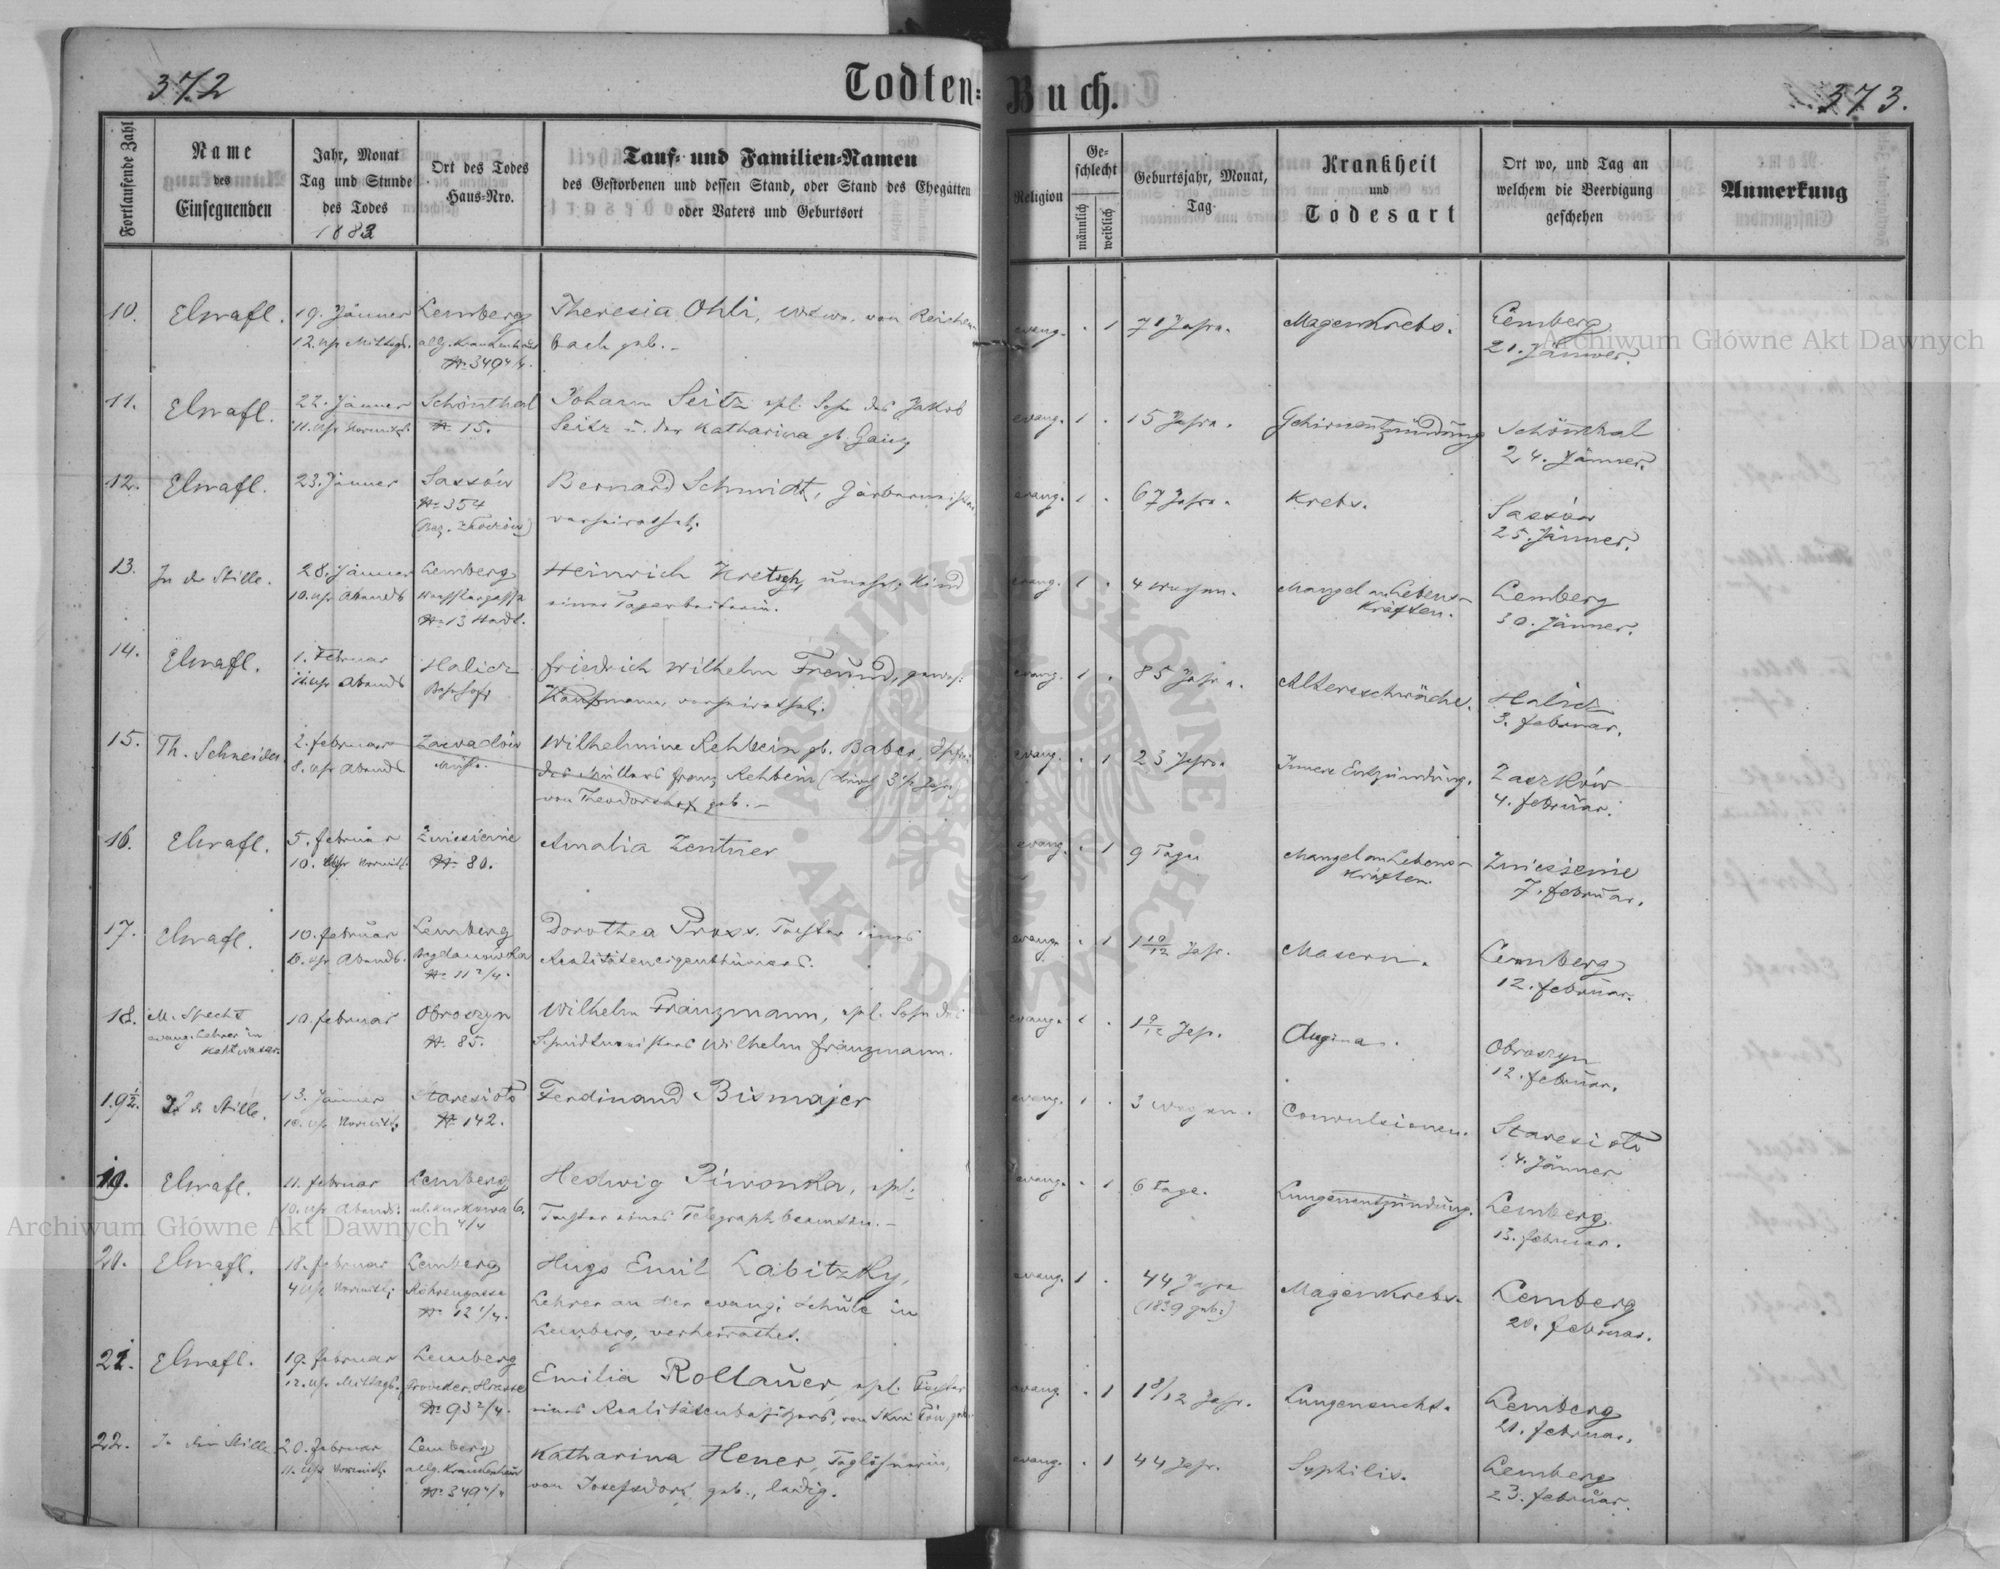 372
Todten-
Buch.
373.
Fortlaufende Zahl
Name
des
Einsegnenden
Jahr, Monat
Tag und Stunde
des Todes
1883
Ort des Todes
Haus-Nro.
Tauf- und Familien-Namen
des Gestorbenen und dessen Stand, oder Stand des Ehegatten
oder Vaters und Geburtsort
Religion
Ge-
schlecht
männlich
weiblich
Geburtsjahr, Monat,
Tag
Krankheit
und
Todesart
Ort wo, und Tag an
welchem die Beerdigung
geschehen
Anmerkung
10.
19. Jänner
12. Uhr Mittags.
Lemberg
allg. Krankenhaus
№ 349 4/4.
Theresia Ohli, von Reichen-
bach geb. –
evang. . 1
71 Jahre.
Magenkrebs.
Lemberg
21. Jänner.
11.
22. Jänner
11. Uhr Vormitt.
Schönthal
№ 15.
Johann Seitz, ehl. Sohn des Jakob
Seitz u. der Katharina gb.
evang. 1 .
15 Jahre.
Gehirnentzündung
Schönthal
24. Jänner.
12.
23. Jänner
Sassów
№ 354
(Bez. Złoczów)
Bernard Schmidt, Gärbermeister
verheirathet.
evang. 1 .
67 Jahre.
Krebs.
Sassów
25. Jänner.
13.
In der Stille.
28. Jänner
10. Uhr Abends
Lemberg
№ 13 Stadt.
Heinrich unehel. Kind
einer Tagarbeiterin.
evang. 1 .
4 Wochen.
Mangel an Lebens-
Kräften.
Lemberg
30. Jänner.
14.
1. Februar
11. Uhr Abends
Halicz
Bahnhof
Friedrich Wilhelm Freund, gewes.
Kaufmann, verheirathet.
evang. 1 .
85 Jahre.
Altersschwäche.
Halicz
3. Februar.
15.
Th. Schneider.
2. Februar
8. Uhr Abends
Zawadów
Mühle.
Wilhelmine Rehbein gb. Baber,
des Müllers Franz Rehbein (durch 3 1/2 Jahre)
von Theodorshof geb. –
evang. . 1
23 Jahre.
Innere Entzündung.
Zaszków
4. Februar.
16.
5. Februar
10. Uhr Vormitt.
Zniesienie
№ 80.
Amalia Zentner
evang. . 1
9 Tage
Mangel an Lebens-
Kräften.
Zniesienie
7. Februar.
17.
10. Februar
Uhr Abends.
Lemberg
Bogdanowka
№ 11 2/4.
Dorothea Pross, Tochter eines
Realitäteneigenthümers.
evang. . 1
1 10/12 Jahr.
Masern.
Lemberg
12. Februar.
18.
M. Specht
evang. Lehrer in
Kaltwasser.
10. Februar
Obroszyn
№ 85.
Wilhelm Franzmann, ehl. Sohn des
Schmidtmeisters Wilhelm Franzmann.
evang. 1 .
1 9/12 Jahr.
Angina.
Obroszyn
12. Februar.
19 1/2.
In der Stille.
13. Jänner
10. Uhr Vormitt.
Staresioło
№ 142.
Ferdinand Bismajer
evang. 1 .
3 Wochen.
Convulsionen.
Staresioło
14. Jänner
19.
11. Februar
10. Uhr Abends.
Lemberg
ul. Kurkowa 6.
4/4
Hedwig Piwonka, ehl.
Tochter eines Telegraphbeamten. –
evang. . 1
6 Tage.
Lungenentzündung.
Lemberg
13. Februar.
20.
18. Februar
4 Uhr Vormitt.
Lemberg
Röhrengasse
№ 12 1/4.
Hugo Emil Labitzky,
Lehrer an der evang. Schule in
Lemberg, verheirathet.
evang. 1 .
44 Jahre
(1839 geb.)
Magenkrebs.
Lemberg
20. Februar.
21.
19. Februar
12. Uhr Mittags.
Lemberg
№ 93 2/4.
Emilia Rollauer, ehl. Tochter
eines Realitätenbesitzers,
evang. . 1
1 8/12 Jahr.
Lungensucht.
Lemberg
21. Februar.
22.
In der Stille
20. Februar
11. Uhr Vormitt.
Lemberg
allg. Krankenhaus
№ 349 4/4
Katharina Hener, Taglöhnerin,
von Josefsdorf geb., ledig.
evang. . 1
44 Jahr.
Syphilis.
Lemberg
23. Februar.
Archiwum Główne Akt Dawnych
Archiwum Główne Akt Dawnych
ARCHIWUM GŁÓWNE · AKT DAWNYCH ·